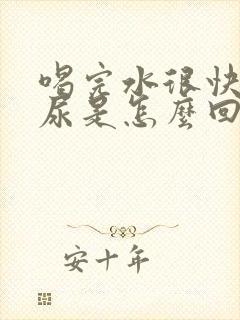 喝完水很快
尿是怎麼回
安十年